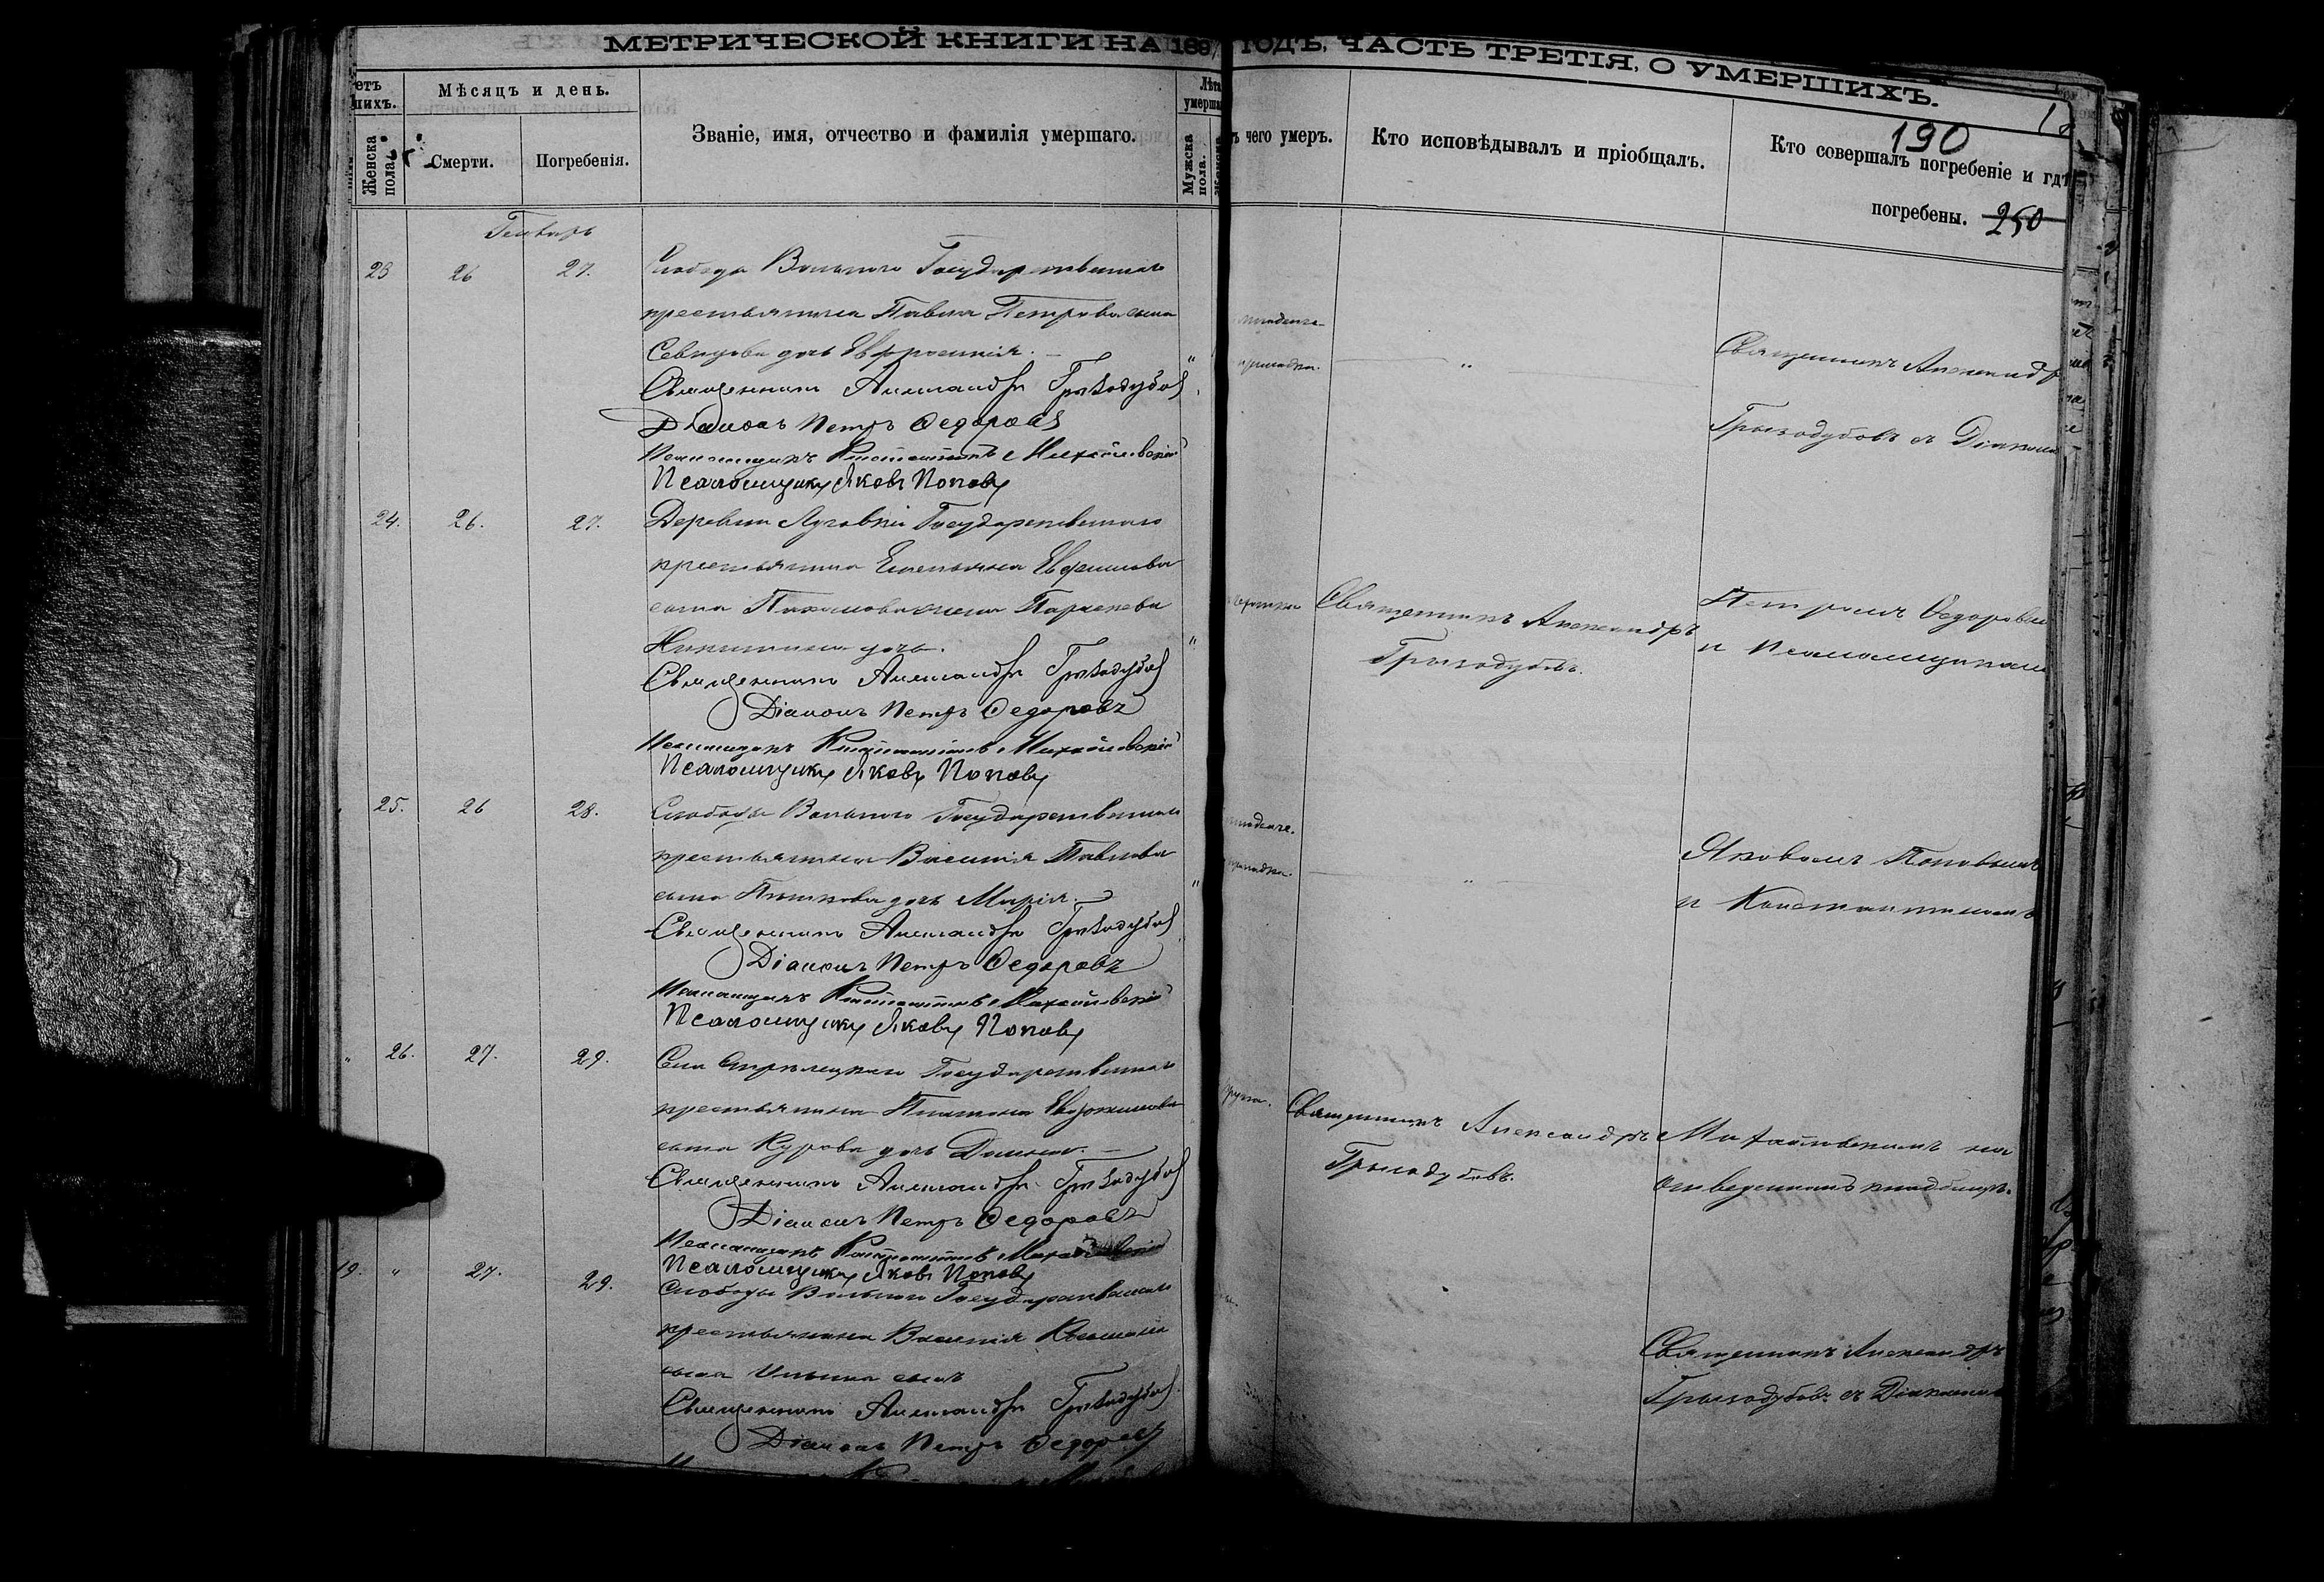 МЕТРИЧЕСКОЙ КНИГИ НА 189 ГОДЪ, ЧАСТЬ ТРЕТІЯ, О УМЕРШИХЪ.
190
етъ
шихъ.
Мѣсяцъ и день.
Званіе, имя, отчество и фамилія умершаго.
Лѣта
умерша
Женска
пола.
Смерти.
Погребенія.
Мужска
пола.
чего умеръ.
Кто исповѣдывалъ и пріобщалъ.
Кто совершалъ погребеніе и гдѣ
погребены. 250
Генварь
23 26 27. Слободы Вольнаго Государственнаго
крестьянина Павла Петрова сына
Севидова дочь Евфросинія.
Священникъ Александръ Грызодубов
Діаконъ Петръ Федоровъ
Псаломщикъ Константинъ Михайловскій
Псаломщикъ Яковъ Поповъ
младенче
припадка.
Священникъ Александр
Грызодубовъ съ Діаконо
24. 26. 27. Деревни Луговки Государственнаго
крестьянина Емельяна Евфимова
сына Пахомова жена Параскева
Никитина дочь.
Священникъ Александръ Грызодубов
Діаконъ Петръ Федоровъ
Псаломщикъ Константинъ Михайловскій
Псаломщикъ Яковъ Поповъ
Священникъ Александръ
Грызодубовъ.
Петромъ Федоровы
и Псаломщиками
25. 26 28. Слободы Вольнаго Государственнаго
крестьянина Василія Павлова
сына дочь Марія.
Священникъ Александръ Грызодубов
Діаконъ Петръ Федоровъ
Псаломщикъ Константинъ Михайловскій
Псаломщикъ Яковъ Поповъ
младенче.
припадка.
Яковомъ Поповымъ
и Константиномъ
26. 27. 29. Села Стрѣлецкаго Государственнаго
крестьянина Платона Евдокимова
сына Курова дочь
Священникъ Александръ Грызодубов
Діаконъ Петръ Федоровъ
Псаломщикъ Константинъ Михайловскій
Псаломщикъ Яковъ Поповъ
Священникъ Александръ
Грызодубовъ.
Михайловскимъ на
отведенномъ кладбищѣ.
19. " 27. 29. Слободы Вольнаго Государственнаго
крестьянина Василія
сына Ильина сынъ
Священникъ Александръ Грызодубов
Діаконъ Петръ Федоровъ
Священникъ Александръ
Грызодубовъ съ Діакономъ